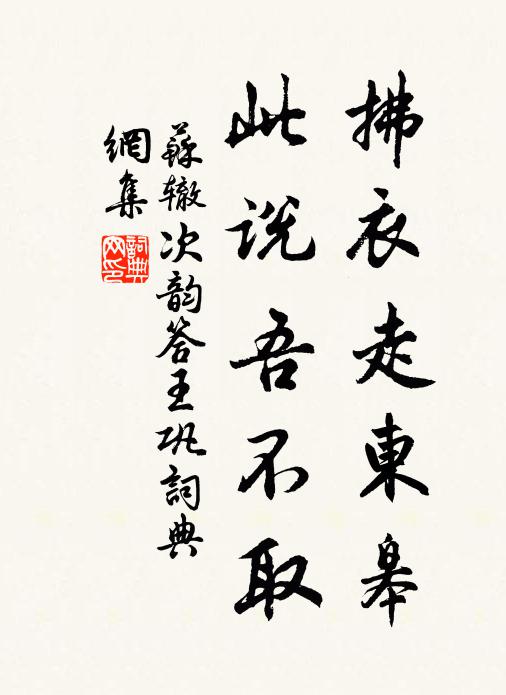 拂衣走東皋
此说吾不取
蘇辙次韵答王巩詞典
網集
詞典
网印